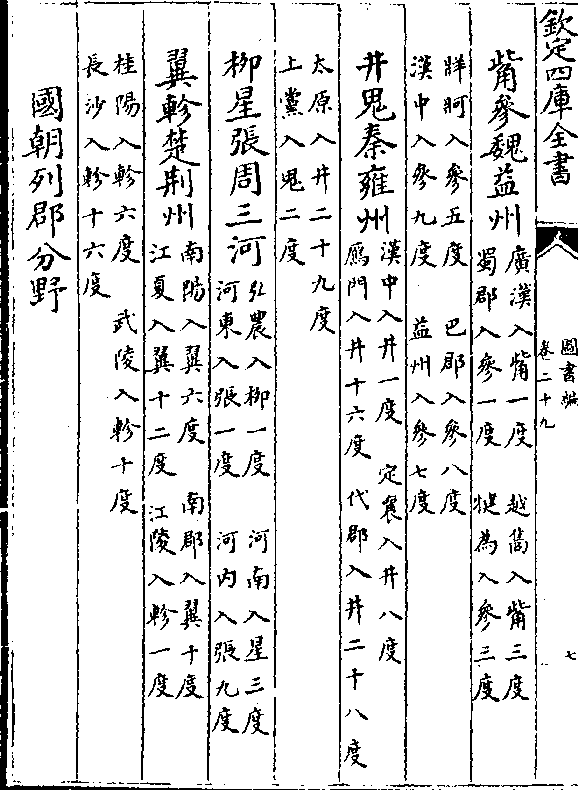 欽定四庫全書
圖書編
卷二十九
七
觜參魏益州
廣漢入觜一度　越嶲入觜三度
蜀郡入參一度　犍為入參三度
牂牁入參五度　巴郡入參八度
漢中入參九度　益州入參七度
井鬼秦雍州
漢中入井一度　定襄入井八度
鴈門入井十六度　代郡入井二十八度
太原入井二十九度
上黨入鬼二度
柳星張周三河
弘農入柳一度　河南入星三度
河東入張一度　河內入張九度
翼軫楚荆州
南陽入翼六度　南郡入翼十度
江夏入翼十二度　江陵入軫一度
桂陽入軫六度　武陵入軫十度
長沙入軫十六度
國朝列郡分野